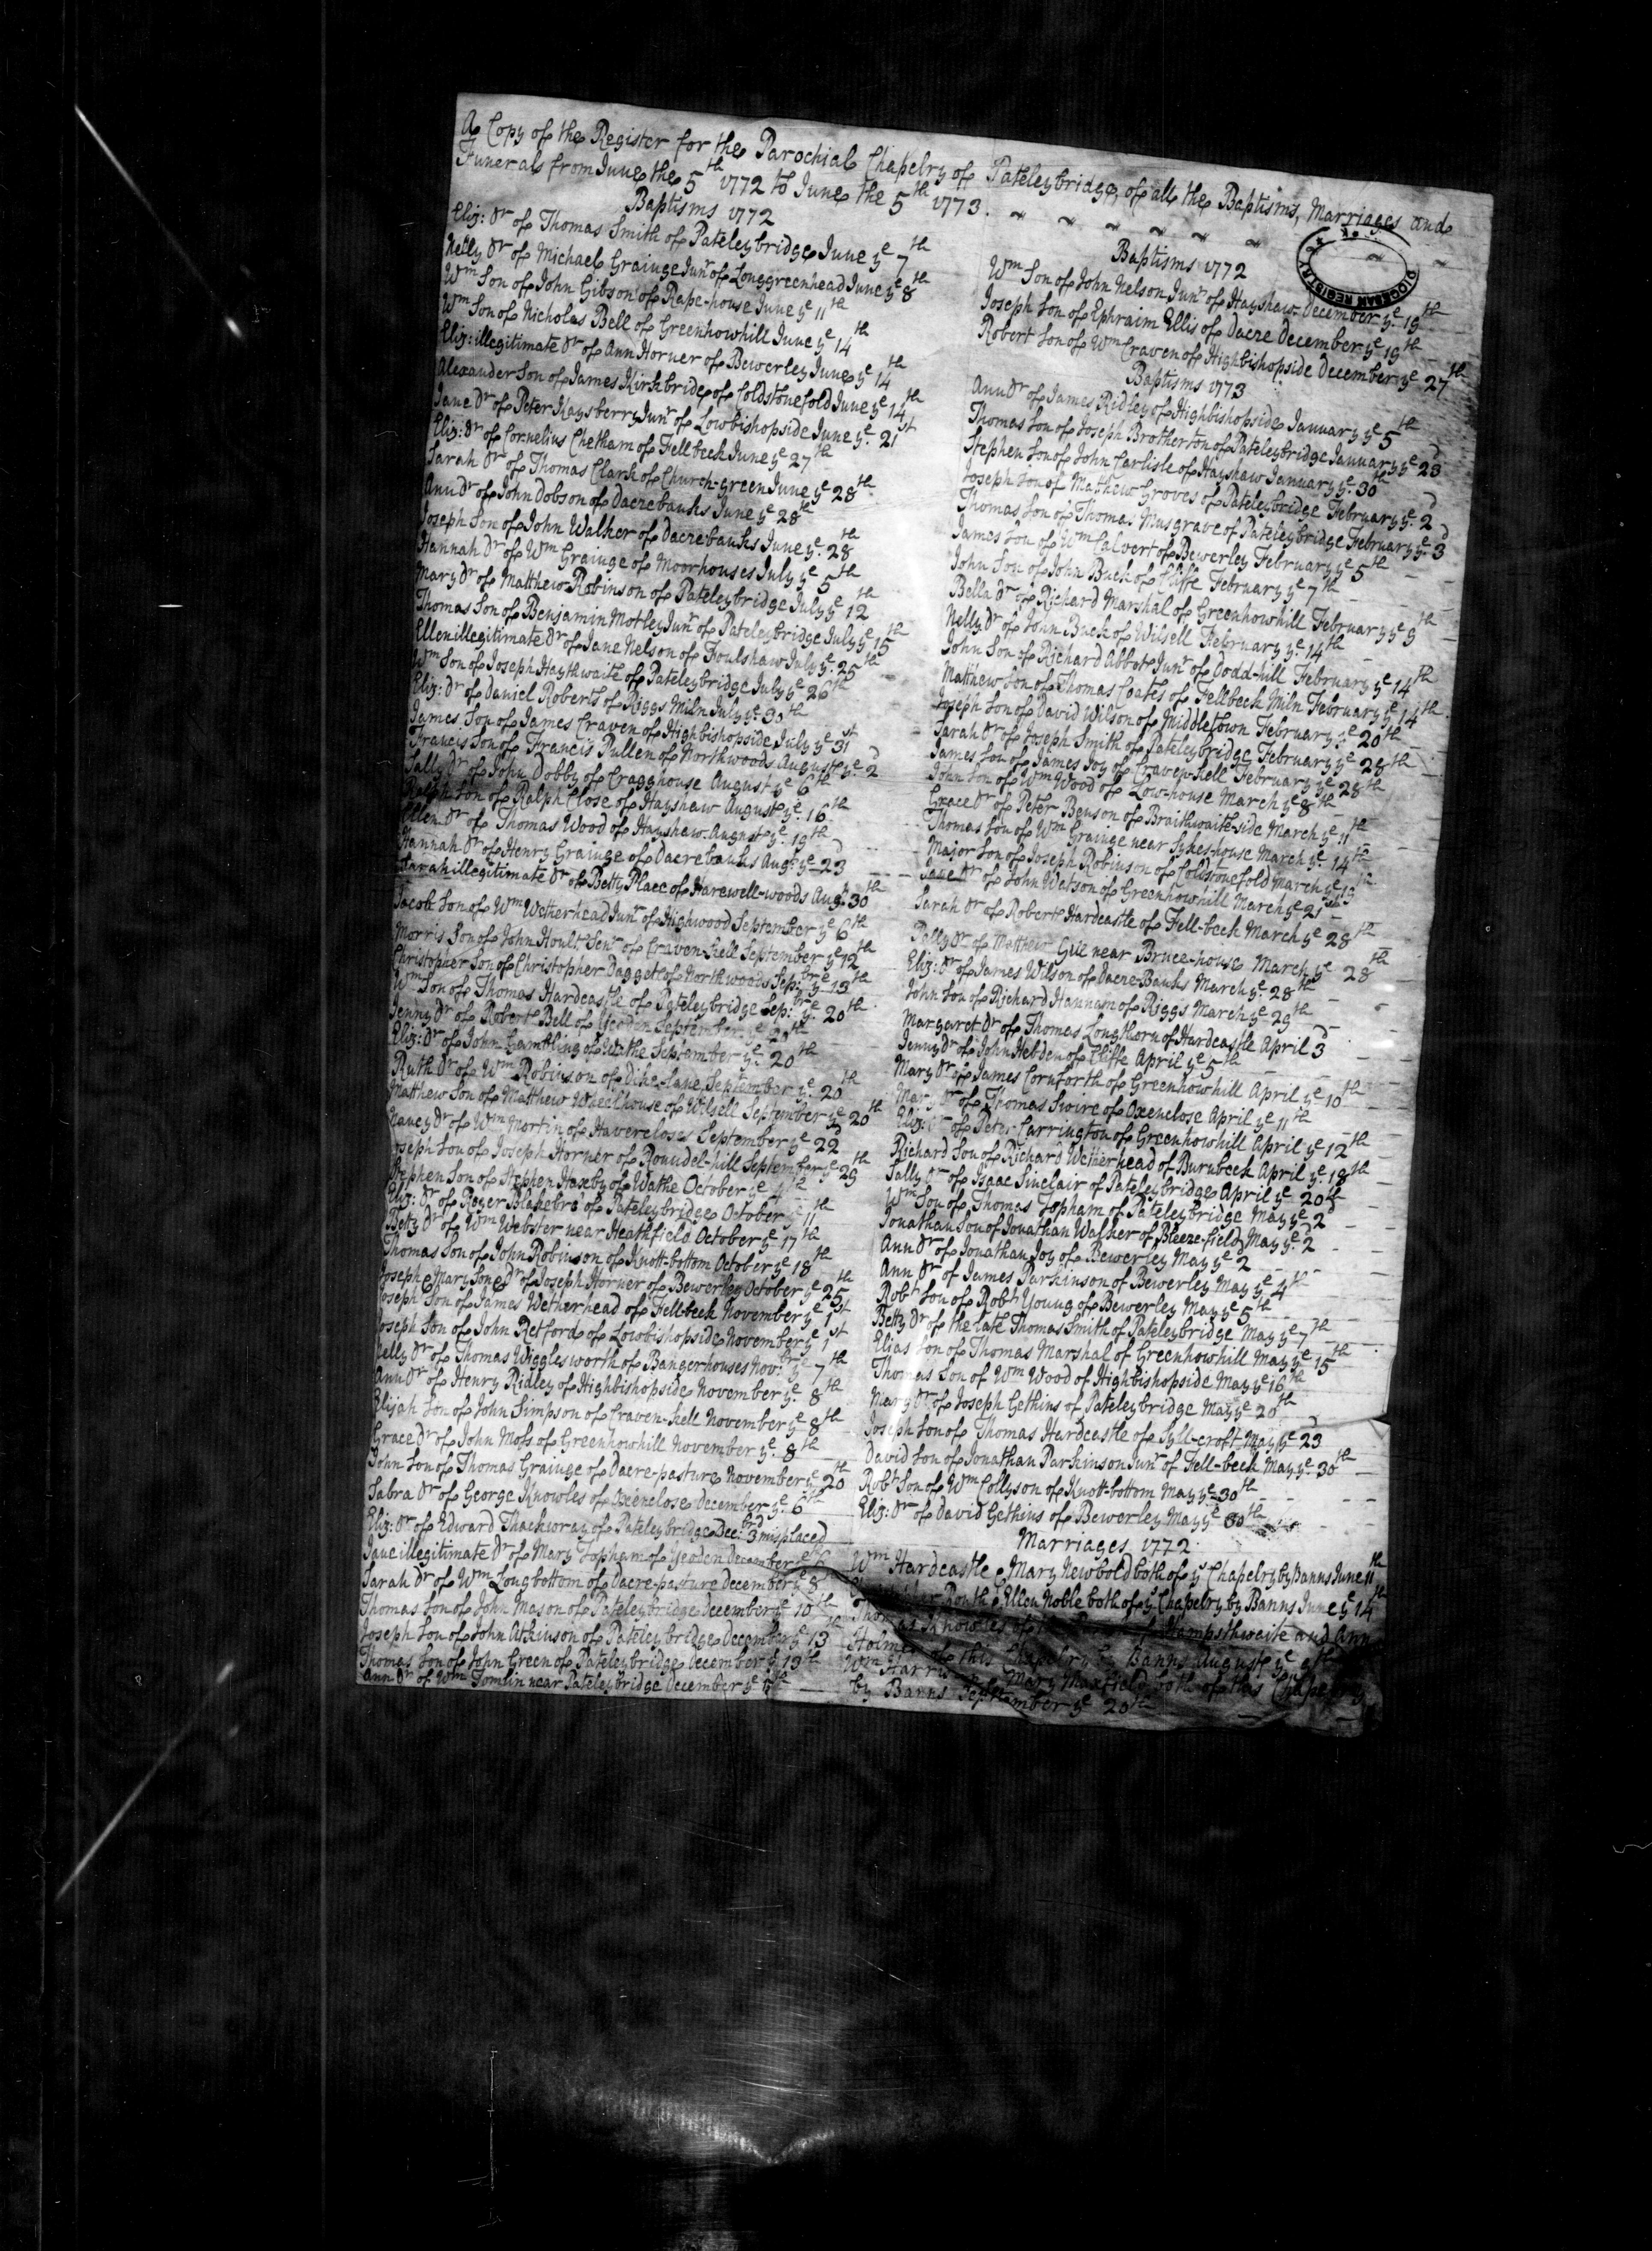 A Copy of the Register for the Parochial Chapelry of Pateleybridge, of all the Baptisms, Marriages and
Funerals from June the 5th 1772 to June the 5th 1773.
Baptisms 1772
Eliz: Dr of Thomas Smith of Pateleybridge June ye 7th
Nelly Dr of Michael Grainge Junr of Longgreenhead June ye 8th
Wm Son of John Gibson of Rape-house June ye 11th
Wm Son of Nicholas Bell of Greenhowhill June ye 14th
Eliz: illegitimate Dr of Ann Horner of Bewerley June ye 14th
Alexander Son of James Kirkbride of Coldstonefold June ye 14th
Jane Dr of Peter Kaysberry Junr of Lowbishopside June ye 21st
Eliz: Dr of Cornelius Chetham of Fellbeck June ye 27th
Sarah Dr of Thomas Clark of Church-green June ye 28th
Ann Dr of John Dobson of Dacrebanks June ye 28th
Joseph Son of John Walker of Dacrebanks June ye 28th
Hannah Dr of Wm Grainge of Moorhouses July ye 5th
Mary Dr of Matthew Robinson of Pateleybridge July ye 12th
Thomas Son of Benjamin Motley Junr of Pateleybridge July ye 15th
Ellen illegitimate Dr of Jane Nelson of Foulshaw July ye 25th
Wm Son of Joseph Haythwaite of Pateleybridge July ye 26th
Eliz: Dr of Daniel Roberts of Riggs Miln July ye 30th
James Son of James Craven of Highbishopside July ye 31st
Francis Son of Francis Pullen of Northwoods August ye 2d
Sally Dr of John Dobby of Cragghouse August ye 6th
Ralph Son of Ralph Close of Hayshaw August ye 16th
Ellen Dr of Thomas Wood of Hayshaw August ye 19th
Hannah Dr of Henry Grainge of Dacrebanks Aug: ye 23d
Sarah illegitimate Dr of Betty Place of Harewell-woods Aug: 30th
Jacob Son of Wm Wetherhead Junr of Highwood September ye 6th
Morris Son of John Hoult Senr of Craven-kell September ye 12th
Christopher Son of Christopher Dagget of Northwoods Sepbr ye 13th
Wm Son of Thomas Hardcastle of Pateleybridge Sepbr ye 20th
Jenny Dr of Robert Bell of Yeodon September ye 20th
Eliz: Dr of John Gambling of Wathe September ye 20th
Ruth Dr of Wm Robinson of Dike-lane September ye 20th
Matthew Son of Matthew Wheelhouse of Wilsell September ye 20th
Nancy Dr of Wm Mortin of Haverclose September ye 22d
Joseph Son of Joseph Horner of Roundel-hill September ye 29th
Stephen Son of Stephen Haxby of Wathe October ye 4th
Eliz: Dr of Roger Blakebro' of Pateleybridge October ye 11th
Betty Dr of Wm Webster near Heathfield October ye 17th
Thomas Son of John Robinson of Knott-bottom October ye 18th
Joseph & Mary Son & Dr of Joseph Horner of Bewerley October ye 25th
Joseph Son of James Wetherhead of Fellbeck November ye 1st
Joseph Son of John Retford of Lowbishopside November ye 1st
Nelly Dr of Thomas Wigglesworth of Bangerhouses Novbr ye 7th
Ann Dr of Henry Ridley of Highbishopside November ye 8th
Elijah Son of John Simpson of Craven-kell November ye 8th
Grace Dr of John Moss of Greenhowhill November ye 8th
John Son of Thomas Grainge of Dacre-pasture November ye 20th
Sabra Dr of George Knowles of Oxenclose December ye 6th
Eliz: Dr of Edward Thackwray of Pateleybridge Decbr 3rd misplaced
Jane illegitimate Dr of Mary Topham of Yeodon December ye 6
Sarah Dr of Wm Longbottom of Dacre-pasture December ye 8
Thomas Son of John Mason of Pateleybridge December ye 10th
Joseph Son of John Atkinson of Pateleybridge December ye 13th
Thomas Son of John Green of Pateleybridge December ye 13th
Ann Dr of Wm Tomlin near Pateleybridge December ye
Baptisms 1772
Wm Son of John Nelson Junr of Hayshaw December ye 19th
Joseph Son of Ephraim Ellis of Dacre December ye 19th
Robert Son of Wm Craven of Highbishopside December ye 27th
Baptisms 1773
Ann Dr of James Ridley of Highbishopside January ye 5th
Thomas Son of Joseph Brotherton of Pateleybridge January ye 23d
Stephen Son of John Carlisle of Hayshaw January ye 30th
Joseph Son of Matthew Groves of Pateleybridge February ye 2d
Thomas Son of Thomas Musgrave of Pateleybridge February ye 3d
James Son of Wm Calvert of Bewerley February ye 5th
John Son of John Buck of Cliffe February ye 7th
Bella Dr of Richard Marshal of Greenhowhill February ye 9th
Nelly Dr of John Buck of Wilsell February ye 14th
John Son of Richard Abbot Junr of Dodd-hill February ye 14th
Matthew Son of Thomas Coates of Fellbeck Miln February ye 14th
Joseph Son of David Wilson of Middletown February ye 20th
Sarah Dr of Joseph Smith of Pateleybridge February ye 28th
James Son of James Joy of Craven-kell February ye 28th
John Son of Wm Wood of Low-house March ye 8th
Grace Dr of Peter Benson of Braithwaite-side March ye 11th
Thomas Son of Wm Grainge near Sykes-house March ye 14th
Major Son of Joseph Robinson of Coldstonefold March ye 19th
Jane Dr of John Watson of Greenhowhill March ye 21st
Sarah Dr of Robert Hardcastle of Fell-beck March ye 28th
Polly Dr of Matthew Gill near Bruce-house March ye 28th
Eliz: Dr of James Wilson of Dacre-Banks March ye 28th
John Son of Richard Hannam of Riggs March ye 29th
Margaret Dr of Thomas Longthorn of Hardcastle April 3d
Jenny Dr of John Hebden of Cliffe April ye 5th
Mary Dr of James Cornforth of Greenhowhill April ye 10th
Mary Dr of Thomas Swire of Oxenclose April ye 11th
Eliz: Dr of Peter Carrington of Greenhowhill April ye 12th
Richard Son of Richard Wetherhead of Burnbeck April ye 18th
Sally Dr of Isaac Sinclair of Pateleybridge April ye 20th
Wm Son of Thomas Topham of Pateleybridge May ye 2d
Jonathan Son of Jonathan Walker of Bleeze-field May ye 2d
Ann Dr of Jonathan Joy of Bewerley May ye 2
Ann Dr of James Parkinson of Bewerley May ye 4th
Robt Son of Robt Young of Bewerley May ye 5th
Betty Dr of the late Thomas Smith of Pateleybridge May ye 7th
Elias Son of Thomas Marshal of Greenhowhill May ye 15th
Thomas Son of Wm Wood of Highbishopside May ye 16th
Mary Dr of Joseph Gethins of Pateleybridge May ye 20th
Joseph Son of Thomas Hardcastle of Syll-croft May ye 23d
David Son of Jonathan Parkinson Junr of Fell-beck May ye 30th
Robt Son of Wm Collyson of Knott-bottom May ye 30th
Eliz: Dr of David Gethins of Bewerley May ye 30th
Marriages 1772
Wm Hardcastle & Mary Newbold both of ys Chapelry by Banns June 11th
Routh & Ellen Noble both of ys Chapelry by Banns June ye 14th
Thomas Knowles of the Hampsthwaite and Ann
Holmes of this Chapelry by Banns August ye
Wm Harris Mary Maxfield both of this Chapelry
by Banns September ye 20th
DIOCESAN REGISTRY